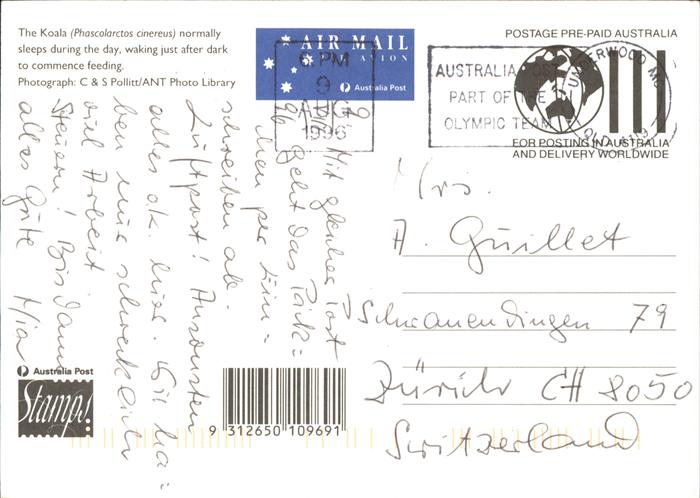 The Koala (Phascolarctos cinereus) normally
sleeps during the day, waking just after dark
to commence feeding.
Photograph: C & S Pollitt/ANT Photo Library
AIR MAIL
PAR AVION
Australia Post
6 PM
9
AUG
1996
AUSTRALIA POST
PART OF THE
OLYMPIC TEAM
UNDERWOOD MC
QLD 4119
POSTAGE PRE-PAID AUSTRALIA
FOR POSTING IN AUSTRALIA
AND DELIVERY WORLDWIDE
Mit gleicher Post
geht das Päck=
chen per Ein=
schreiben ab.
Luftpost! Ansonsten
alles ok. hier. Wir ha=
ben nur schrecklich
viel Arbeit
Steuern! Bis dann
alles Gute
Mrs.
A. Guillet
Schwamendingen 79
Zürich CH 8050
Switzerland
Australia Post
Stamps!
9 312650 109691